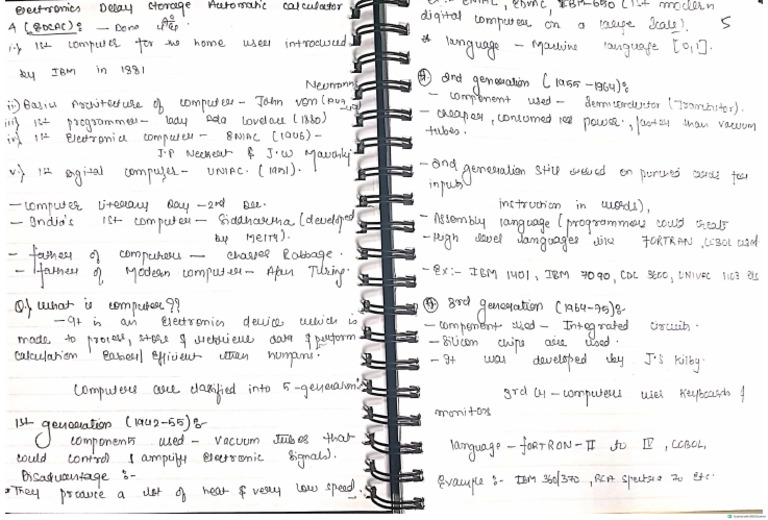 Electronics Delay Storage Automatic calculator
A (EDCAC):- Done
i) 1st computer for the home uses introduced
by IBM in 1981
Neumann
ii) Basic Architecture of computer - John von
iii) 1st programmer - lady Ada lovelace (1880)
iv) 1st Electronics computer - ENIAC (1946) -
J.P Neckert & J.W Mauchly
v) 1st digital computer - UNIAC. (1951).
- computer literary Day - 2nd Dec.
- India's 1st computer - Siddhartha (developed
by MEITY).
- father of computers - charles Babbage.
- father of Modern computer - Alan Turing.
Q.) What is computer??
- It is an Electronics device which is
made to process, store & retrieve data & perform
calculation Easier/Efficient than humans.
Computers are classified into 5-generation
1st generation (1942-55):-
components used - vacuum tubes that
could control & amplify Electronic Signals).
Disadvantage :-
They produce a lot of heat & very low speed
Ex:- ENIAC, EDVAC, IBM-650 (1st modern
digital computer on a large scale). 5
* language - Machine language [0,1].
2nd generation (1955-1964):-
- component used - semiconductor (Transistor).
- cheaper, consumed less power, faster than vacuum
tubes.
- 2nd generation still on punched cards for
input
instruction in words),
- Assembly language (programmers could create
- High level languages like FORTRAN, COBOL used
- Ex:- IBM 1401, IBM 7090, CDC 3600, UNIVAC 1103 etc
3rd generation (1964-75):-
- component used - Integrated circuits.
- Silicon chips are used.
- It was developed by J.S Kilby.
3rd G - computers uses Keyboards &
monitors
language - FORTRON-II to IV, COBOL,
Example :- IBM 360/370, RCA 70 Etc.